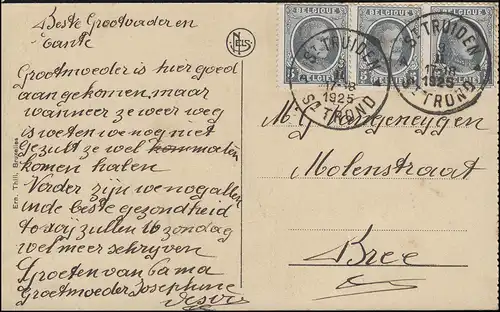 Beste Grootvader en
Tante
Grootmoeder is hier goed
aangekomen, maar
wanneer ze weer weg
is weten we nog niet
ge zult ze wel komen
komen halen
Verder zijn we nog allen
in de beste gezondheid
zullen zondag
wel meer schrijven
Groeten van
Grootmoeder Josephine
NELS
Ern. Thill, Bruxelles
BELGIQUE BELGIQUE BELGIQUE
5 BELGIË 5 BELGIË BELGIË
ST TRUIDEN
1925
ST TROND
ST TRUIDEN
1925
ST TROND
Molenstraat
Bree